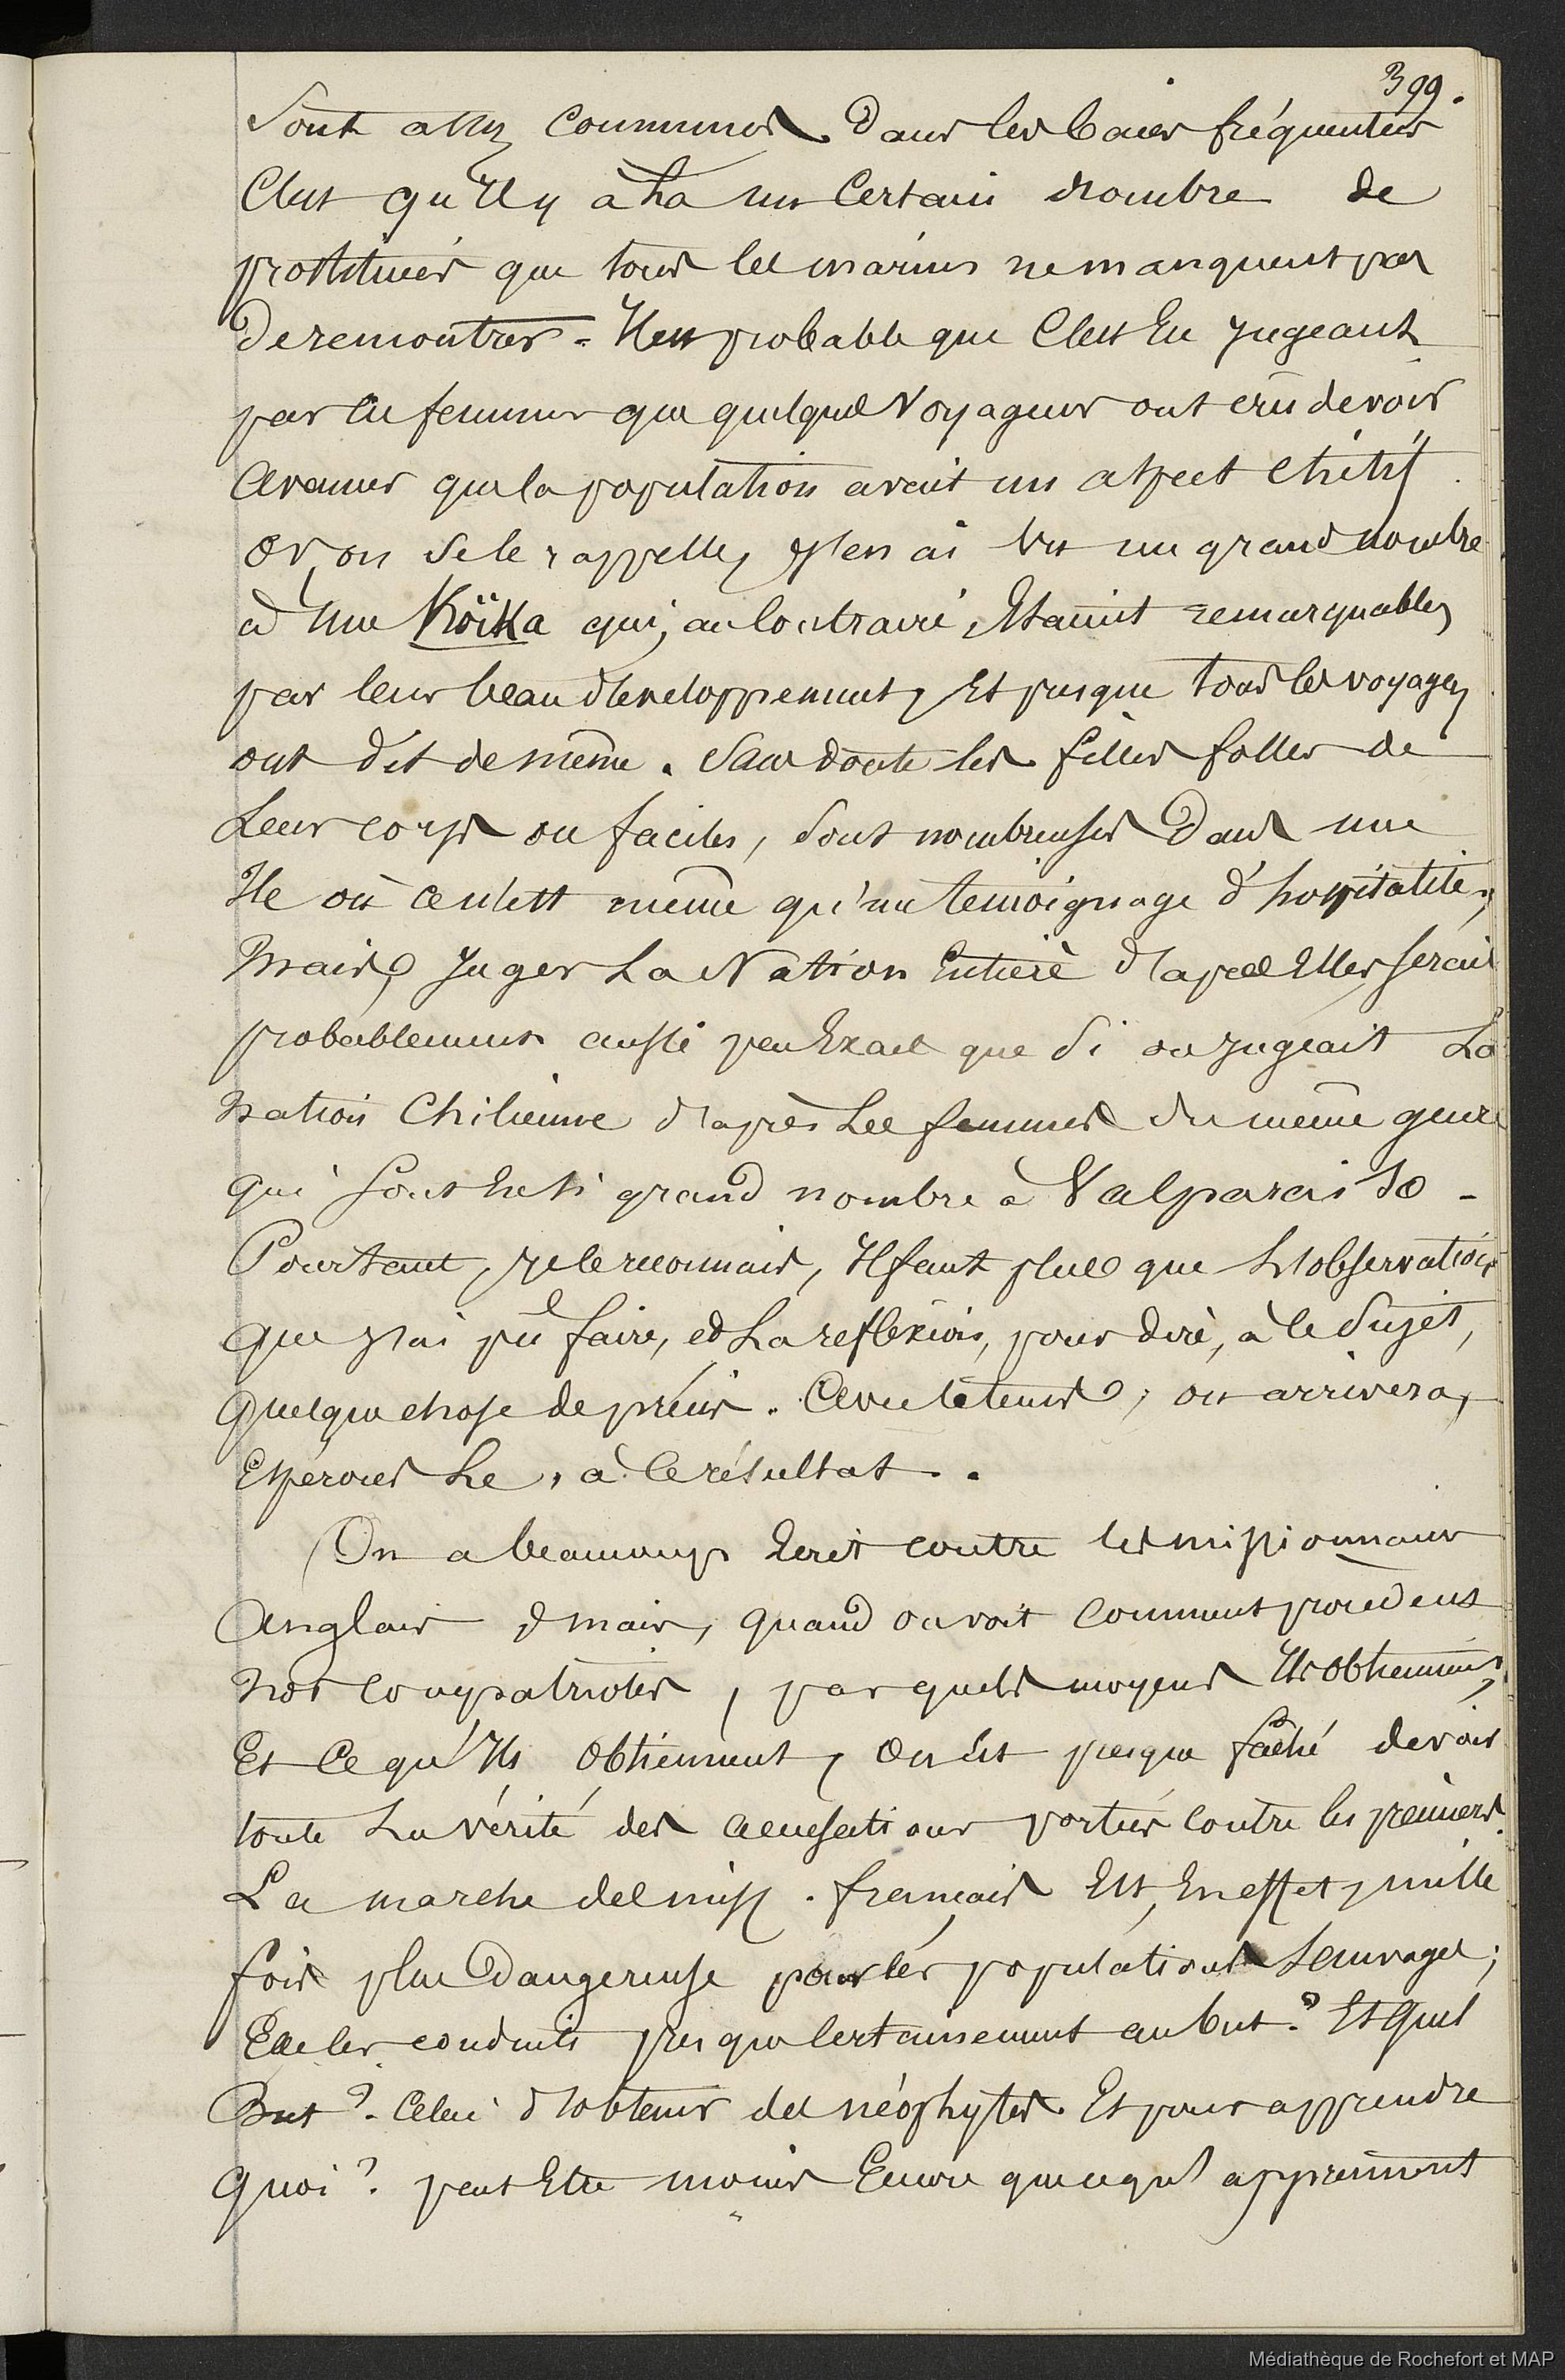 399.
Sont assez communes dans les baies fréquentées
C'est qu'Il y à Là un Certain Nombre de
prostituées que tous les marins ne manquent pas
de remontrer. Il est probable que C'est En Jugeant
par ces femmes que quelques Voyageurs ont crû devoir
avancer que la population avait un aspect chétif.
Or, on se le rappelle, J'en ai Vu un grand nombre
à Une Koïka qui, au Contraire, Etaient remarquables
par leur beau développement, Et presque tous les voyag
ont dit de même. Sans doute les filles folles de
Leur corps ou faciles, Sont nombreuses Dans une
Ile où ce n'est même qu'un témoignage d'hospitalité;
Mais, Juger La Nation Entière d'après Elles, serait
probablement aussi peu Exact que Si on jugeait La
Nation Chilienne d'après Les femmes du même genre
qui sont En Si grand nombre à Valparaiso -
Pourtant, je le reconnais, Il faut plus que L'observation
que J'ai pû faire, et La reflexion, pour dire, à ce Sujet,
quelque chose de précis. Avec le tems, on arrivera,
Espérons Le, à Ce résultat.
On a beaucoup Ecrit contre les missionnaires
anglais ; mais, quand on voit Comment procèdent
nos Compatriotes, par quels moyens Ils obtiennent,
Et Ce qu'Ils obtiennent, On Est presque fâché de voir
toute La vérité des accusations portées Contre les premiers.
La marche des miss. français Est, En effet, mille
fois plus Dangereuse pour les populations Sauvages;
Elle les conduit presque Certainement au but. Et quel
But ? Celui d'obtenir des néophytes. Et pour apprendre
quoi ? peut Etre moins Encore que ce qu' apprennent